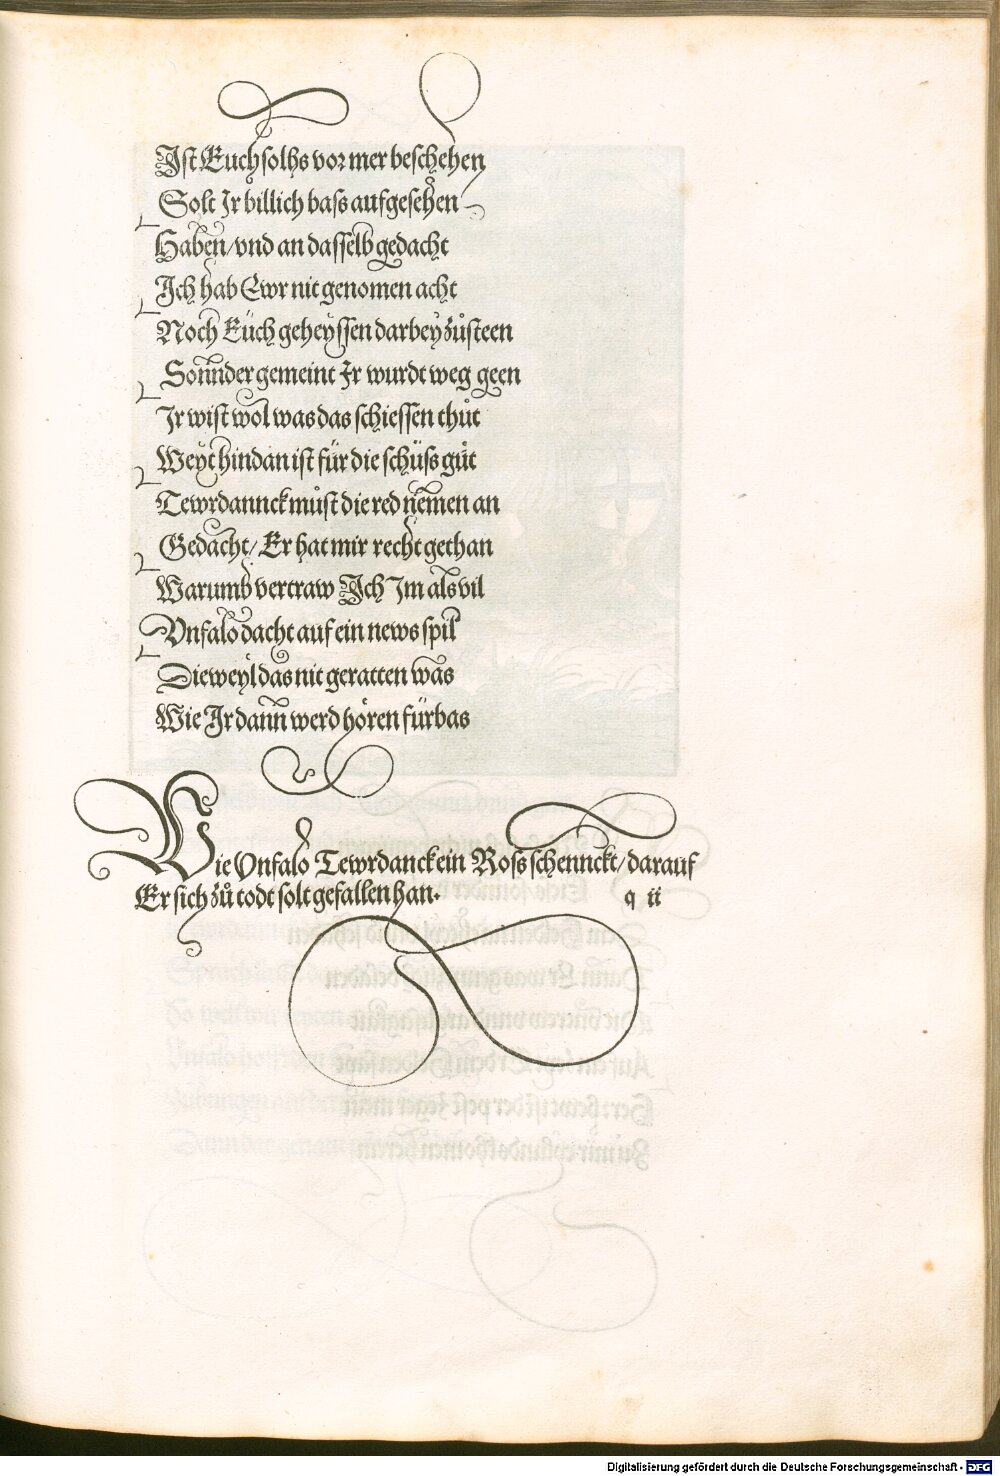 Ist Euch solhs vor mer beschehen
Solt Ir billich bass aufgesehen
Haben/vnd an dasselb gedacht
Ich hab Ewr nit genomen acht
Noch Eüch geheyssen darbey zůsteen
Sonnder gemeint Ir wurdt weg geen
Ir wist wol was das schiessen thůt
Weyt hindan ist für die schüss gůt
Tewrdannck můst die red nemen an
Gedacht/Er hat mir recht gethan
Warumb vertraw Ich Im als vil
Vnfalo dacht auf ein news spil
Dieweyl das nit geratten was
Wie Ir dann werd hören fürbas
Wie Vnfalo Tewrdanck ein Ross schennckt/darauf
Er sich zů todt solt gefallen han.
q ii
Digitalisierung gefördert durch die Deutsche Forschungsgemeinschaft - DFG